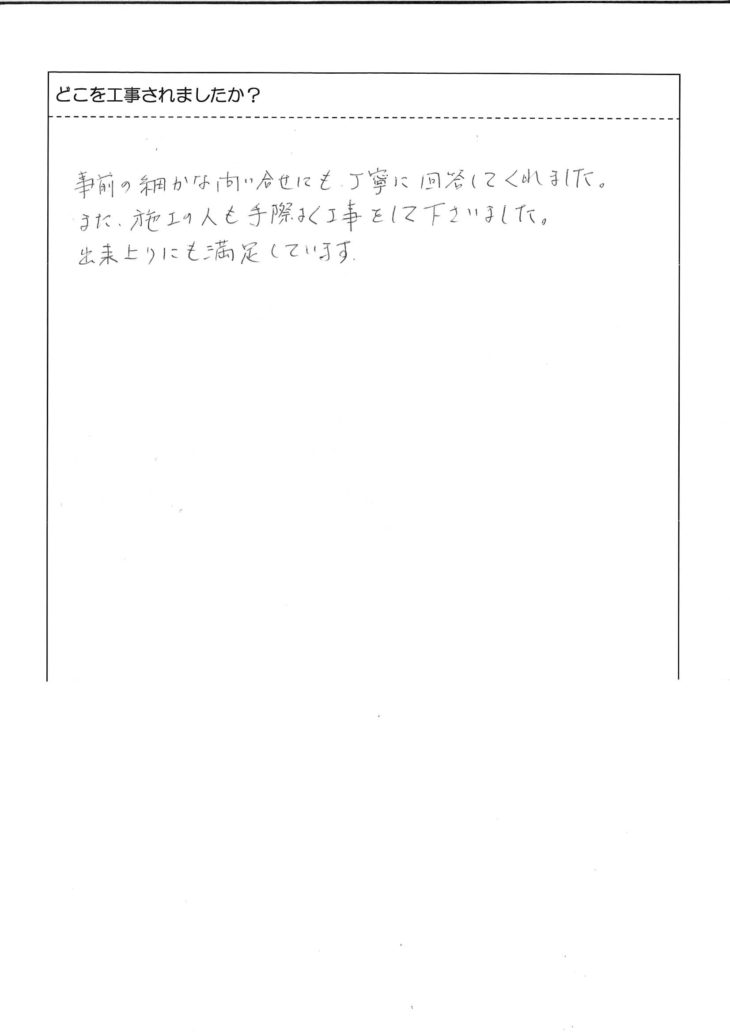 どこを工事されましたか？
事前の細かな問い合せにも、丁寧に回答してくれました。
また、施工の人も手際よく工事をして下さいました。
出来上りにも満足しています。